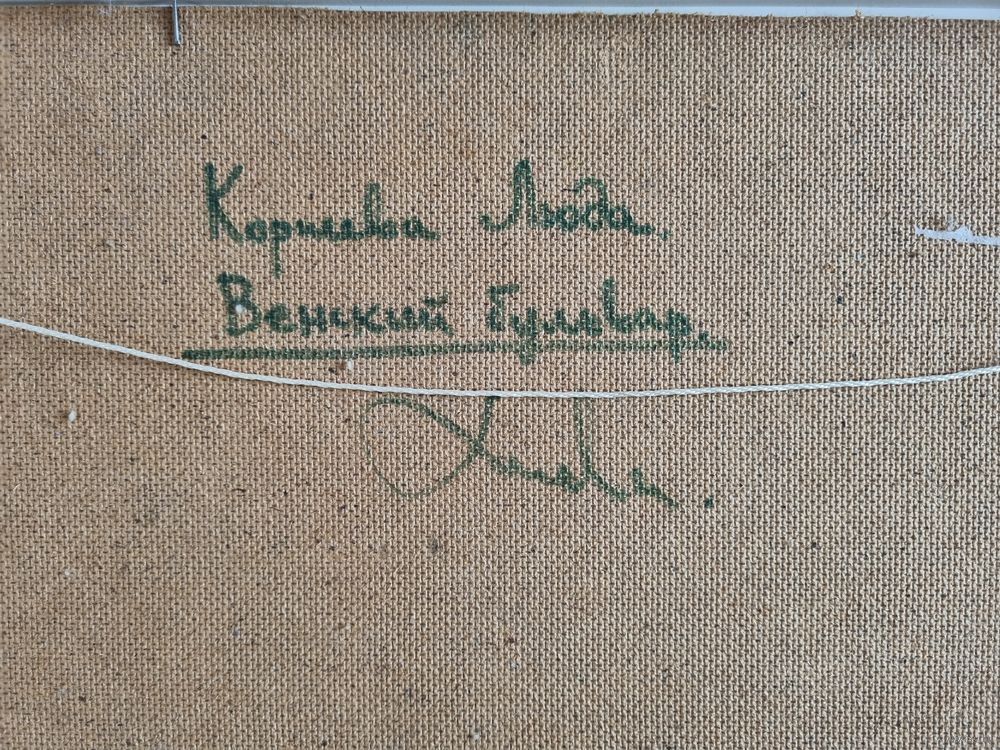 Корнеева Люда.
Венский бульвар.